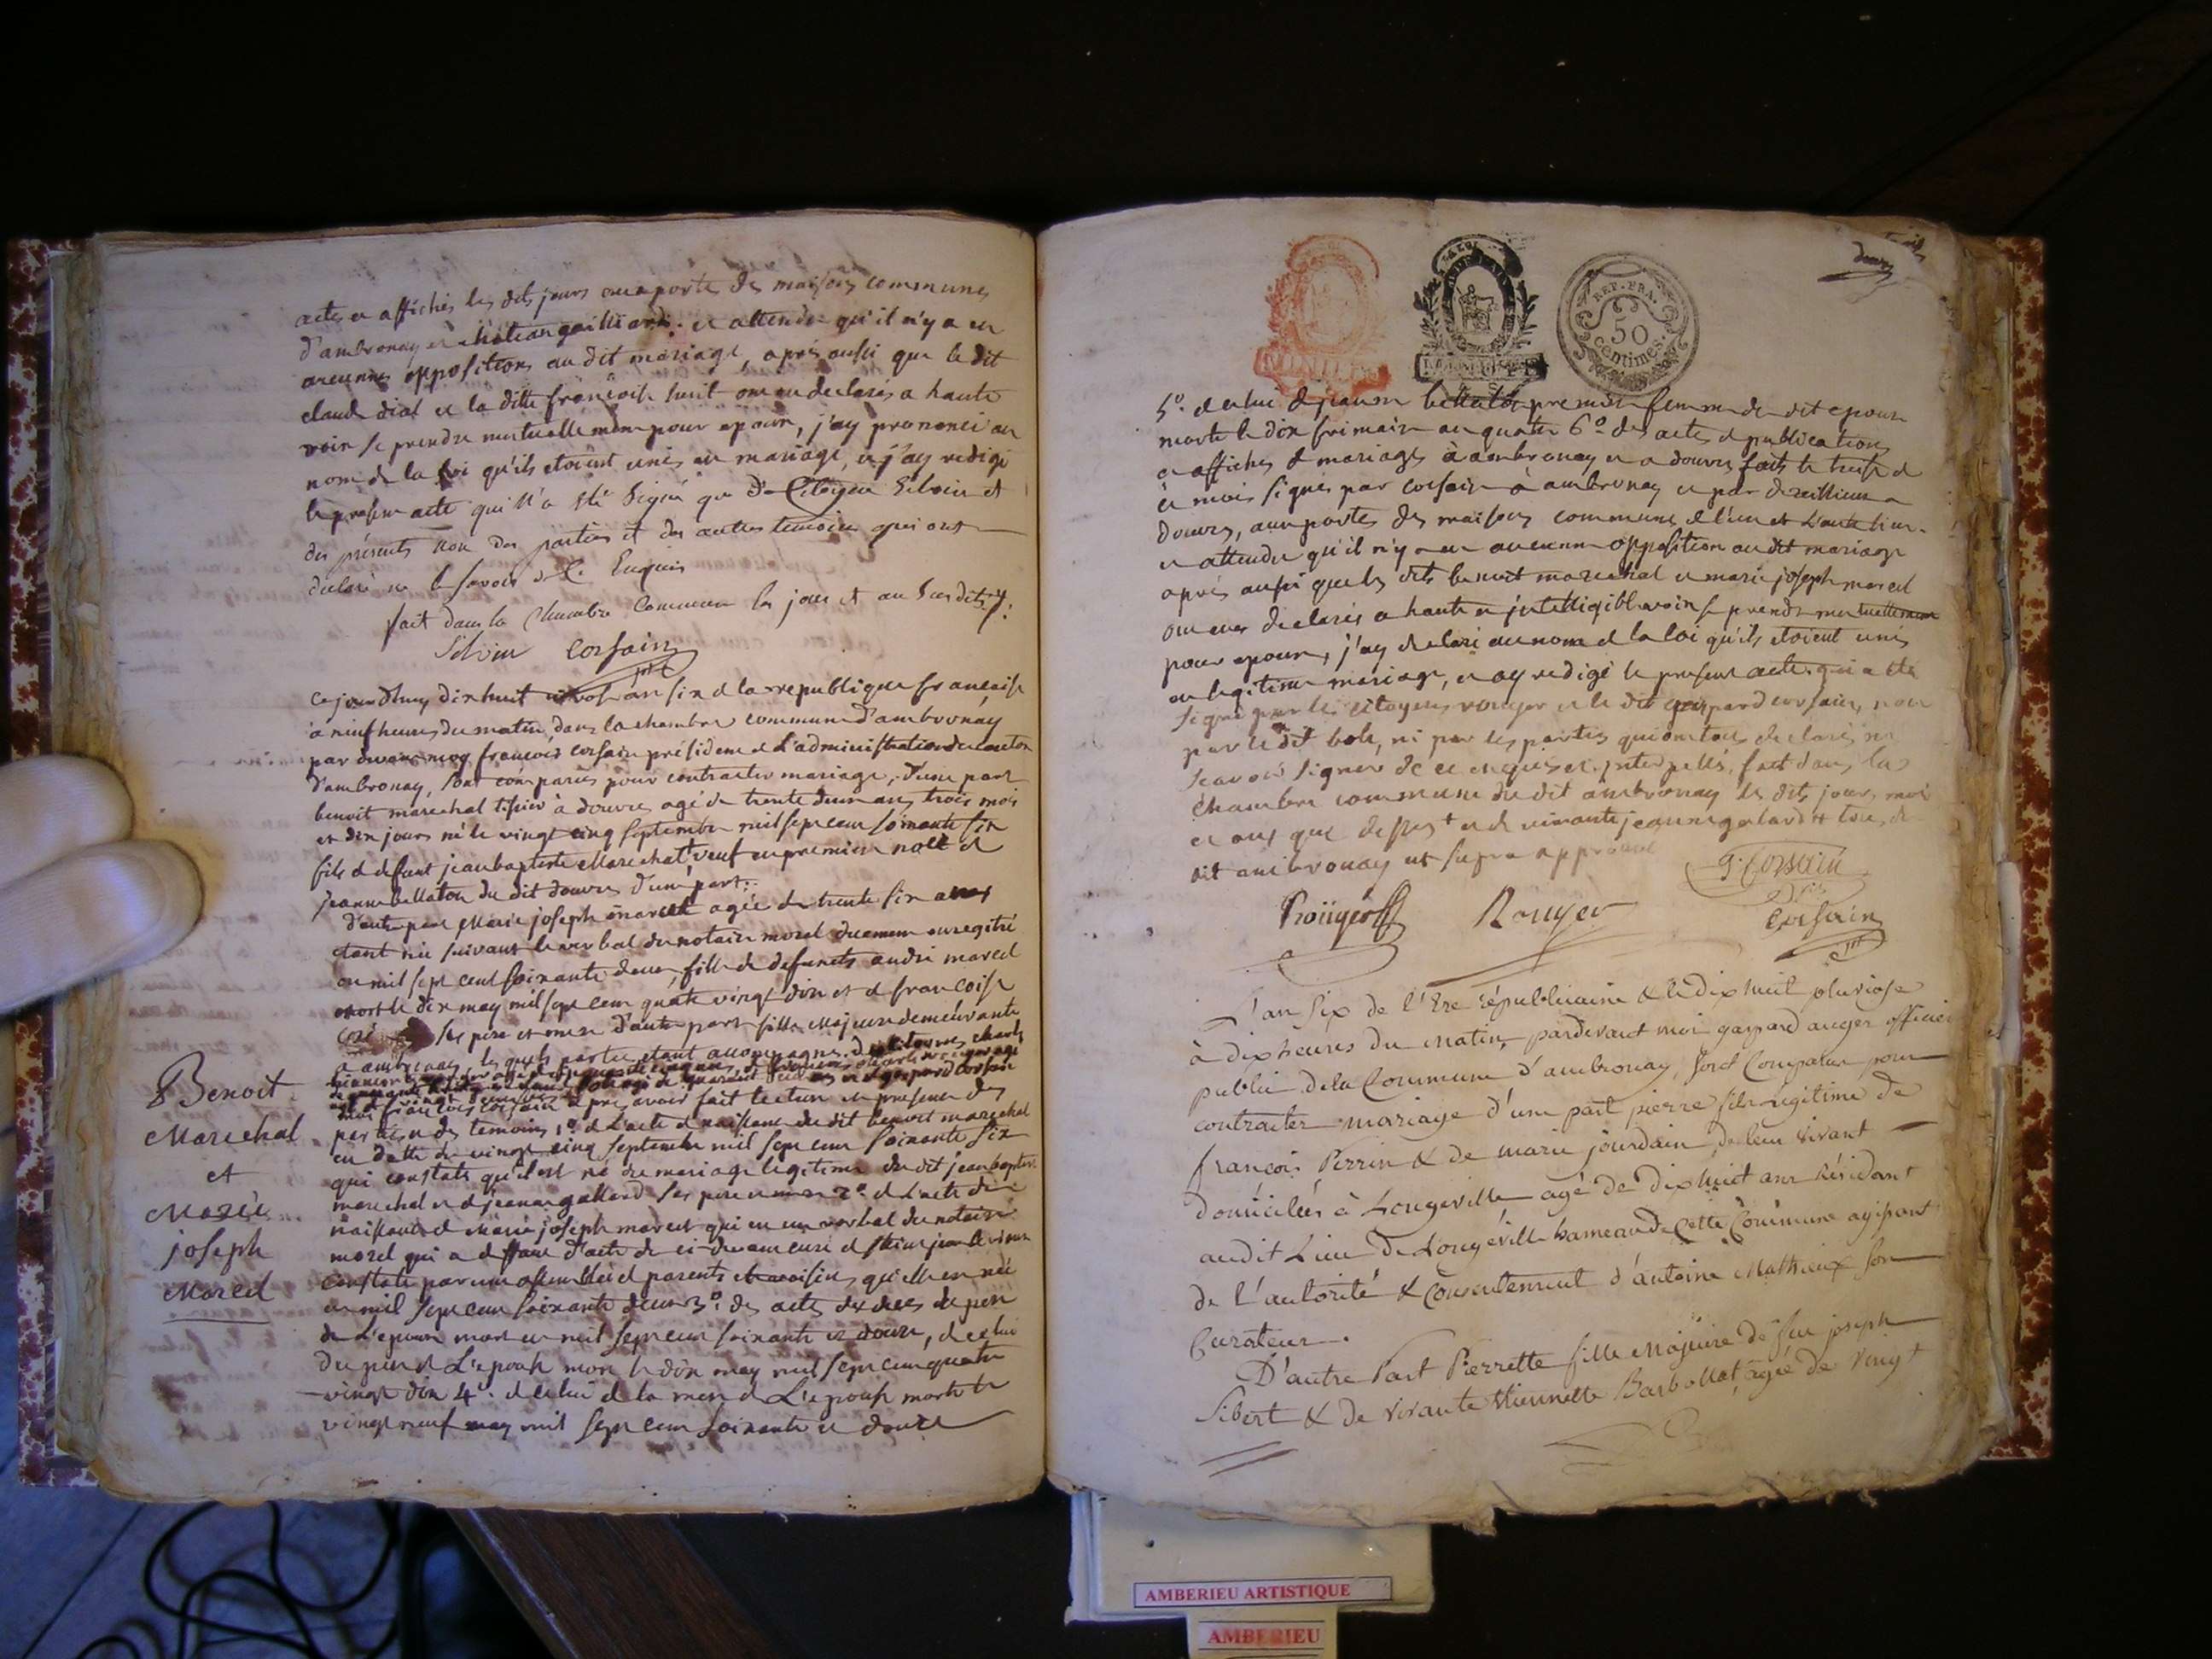 actes et affichés les dits jours aux portes des maisons communes
d'ambronay et chateaugailliard. et attendu qu'il n'y a eu
aucunnes oppositions au dit mariage, après aussi que le dit
claude dial et la ditte francoise ont déclarés a haute
voix se prendre mutuellement pour epoux, j'ay prononcé au
nom de la loi qu'ils etoient unis en mariage, et j'ay redigé
le present acte qui n'a été signé que d'un Citoyen Silvin et
des présents non des parties et des autres temoins qui ont
déclaré ne le savoir de ce Enquis
fait dans la Chambre Commune les jour et an susdits
Silvin Corsain
Ce jourdhuy dixhuit an six de la republique francaise
à neuf heures du matin, dans la chambre commune d'ambronay
par devant moy francois corsain président de L'administration du canton
d'ambronay, sont comparus pour contracter mariage, d'une part
benoit marechal tissier à douvres agé de trente deux ans trois mois
et dix jours né le vingt cinq septembre mil sept cent soixante six
fils de defunt jean baptiste Marechal veuf en premiere
jeanne bellaton du dit douvres d'une part.
d'autre part Marie joseph marcel agée de trente six ans
étant née suivant le verbal du notaire morel duement enregitré
en mil sept cent soixante deux fille de defunts andré marcel
mort le dix may mil sept cent quatre vingt dix et de francoise
ses pere et mere d'autre part fille Majeure demeurante
a ambronay, les quels parties etant accompagnés de Citoyens charle
moi francois corsain après avoir fait lecture en presence des
parties et des temoins 1º de L'acte de naissance du dit benoit marechal
en datte du vingt cinq septembre mil sept cent soixante six
qui constate qu'il est né du mariage legitime du dit jean baptiste
marechal et de jeanne gallard ses pere et mere 2º de L'acte de
naissance de Marie joseph marcel qui est un verbal du notaire
morel qui a defaut d'acte de ci-devant cure de
constate par une assemblée de parents et voisins qu'elle est née
en mil sept cent soixante deux 3º. des actes de deces du pere
de L'epoux mort en mil sept cent soixante et douze, de celui
du pere de L'epouse mort le dix may mil sept cent quatre
vingt dix 4º. de celui de la mere de L'epouse morte le
vingt neuf may mil sept cent soixante et douze
Benoit
Marechal
et
Marie
joseph
Marcel
LA LOI
MINUTE
REP. FRA.
50
centimes.
5º. de celui de jeanne bellaton premiere femme du dit epoux
morte le dix frimaire an quatre 6º. des actes de publications
et affiches de mariage à ambronay et a douvres faits le treize de
ce mois signés par corsain à ambronay et par a
douvres, aux portes des maisons communes de l'un et L'autre lieu.
et attendu qu'il n'y a eu aucunne opposition au dit mariage
après aussi que les dits benoit marechal et marie joseph marcel
ont eues declarés a haute et intelligible voix se prendre mutuellement
pour epoux, j'ay declaré au nom de la loi qu'ils etoient unis
en legitime mariage, et ay redigé le present acte qui a été
signé par les citoyens rouyer et le dit gaspard corsain, non
par le dit bole, ni par les parties qui ont tous declarés ne
scavoir signer de ce enquis et interpellés, fait dans la
chambre commune du dit ambronay les dits jour, mois
et ans que dessus + et de vivante jeanne galard
dit ambronay ut supra approuvé
G. Corsain
Rouyer
Corsain
L'an Six de l'Ere républicaine & le dix huit pluviose
à dix heures du matin, pardevant moi gaspard auger officier
public de la Commune d'ambronay, sont Comparus pour
contracter mariage d'une part pierre fils legitime de
françois Perrin & de marie jourdain de leur vivant
domiciliés à Longeville agé de dix huit ans Résidant
audit Lieu de Longeville hameau de Cette Commune agissant
de l'autorité & Consentement d'antoine Mathieux son
Curateur.
D'autre Part Pierrette fille Majeure de feu joseph
Sibert & de vivante Etiennette Barbollat, agée de vingt
AMBERIEU ARTISTIQUE
AMBERIEU